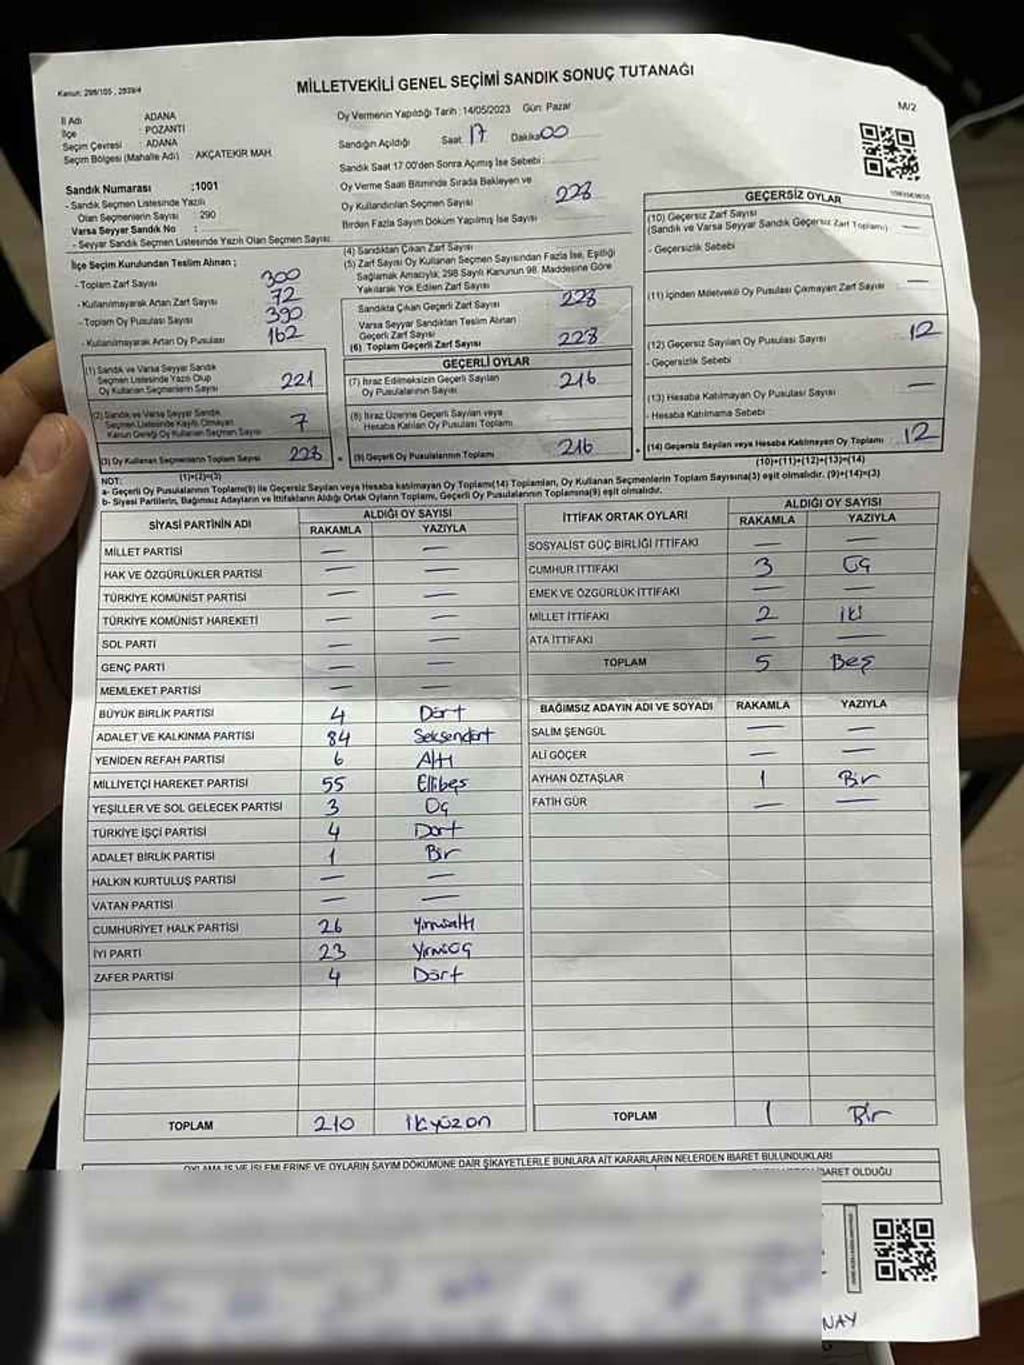 MİLLETVEKİLİ GENEL SEÇİMİ SANDIK SONUÇ TUTANAĞI
Kanun: 298/105 , 2839/4
M/2
İl Adı : ADANA
İlçe : POZANTI
Seçim Çevresi : ADANA
Seçim Bölgesi (Mahalle Adı) : AKÇATEKİR MAH
Sandık Numarası :1001
- Sandık Seçmen Listesinde Yazılı
Olan Seçmenlerin Sayısı : 290
Varsa Seyyar Sandık No :
- Seyyar Sandık Seçmen Listesinde Yazılı Olan Seçmen Sayısı:
Oy Vermenin Yapıldığı Tarih :14/05/2023 Gün: Pazar
Sandığın Açıldığı Saat 17 Dakika 00
Sandık Saat 17.00'den Sonra Açılmış İse Sebebi :
Oy Verme Saati Bitiminde Sırada Bekleyen ve
Oy Kullandırılan Seçmen Sayısı 228
Birden Fazla Sayım Döküm Yapılmış İse Sayısı
İlçe Seçim Kurulundan Teslim Alınan ;
- Toplam Zarf Sayısı 300
- Kullanılmayarak Artan Zarf Sayısı 72
- Toplam Oy Pusulası Sayısı 390
- Kullanılmayarak Artan Oy Pusulası 162
(1) Sandık ve Varsa Seyyar Sandık
Seçmen Listesinde Yazılı Olup
Oy Kullanan Seçmenlerin Sayısı 221
(2) Sandık ve Varsa Seyyar Sandık
Seçmen Listesinde Kayıtlı Olmayan
Kanun Gereği Oy Kullanan Seçmen Sayısı 7
(3) Oy Kullanan Seçmenlerin Toplam Sayısı 228
(1)+(2)=(3)
(4) Sandıktan Çıkan Zarf Sayısı
(5) Zarf Sayısı Oy Kullanan Seçmen Sayısından Fazla İse, Eşitliği
Sağlamak Amacıyla; 298 Sayılı Kanunun 98. Maddesine Göre
Yakılarak Yok Edilen Zarf Sayısı
Sandıkta Çıkan Geçerli Zarf Sayısı 228
Varsa Seyyar Sandıktan Teslim Alınan
Geçerli Zarf Sayısı
(6) Toplam Geçerli Zarf Sayısı 228
GEÇERLİ OYLAR
(7) İtiraz Edilmeksizin Geçerli Sayılan
Oy Pusulalarının Sayısı 216
(8) İtiraz Üzerine Geçerli Sayılan veya
Hesaba Katılan Oy Pusulası Toplamı
= (9) Geçerli Oy Pusulalarının Toplamı 216
GEÇERSİZ OYLAR
(10) Geçersiz Zarf Sayısı
(Sandık ve Varsa Seyyar Sandık Geçersiz Zarf Toplamı) —
- Geçersizlik Sebebi
(11) İçinden Milletvekili Oy Pusulası Çıkmayan Zarf Sayısı —
(12) Geçersiz Sayılan Oy Pusulası Sayısı 12
- Geçersizlik Sebebi :
(13) Hesaba Katılmayan Oy Pusulası Sayısı —
- Hesaba Katılmama Sebebi
+ (14) Geçersiz Sayılan veya Hesaba Katılmayan Oy Toplamı 12
(10)+(11)+(12)+(13)=(14)
NOT:
a- Geçerli Oy Pusulalarının Toplamı(9) ile Geçersiz Sayılan veya Hesaba katılmayan Oy Toplamı(14) Toplamları, Oy Kullanan Seçmenlerin Toplam Sayısına(3) eşit olmalıdır. (9)+(14)=(3)
b- Siyasi Partilerin, Bağımsız Adayların ve İttifakların Aldığı Ortak Oyların Toplamı, Geçerli Oy Pusulalarının Toplamına(9) eşit olmalıdır.
SİYASİ PARTİNİN ADI ALDIĞI OY SAYISI
RAKAMLA YAZIYLA
MİLLET PARTİSİ — —
HAK VE ÖZGÜRLÜKLER PARTİSİ — —
TÜRKİYE KOMÜNİST PARTİSİ — —
TÜRKİYE KOMÜNİST HAREKETİ — —
SOL PARTİ — —
GENÇ PARTİ — —
MEMLEKET PARTİSİ — —
BÜYÜK BİRLİK PARTİSİ 4 Dört
ADALET VE KALKINMA PARTİSİ 84 Seksendört
YENİDEN REFAH PARTİSİ 6 Altı
MİLLİYETÇİ HAREKET PARTİSİ 55 Ellibeş
YEŞİLLER VE SOL GELECEK PARTİSİ 3 Üç
TÜRKİYE İŞÇİ PARTİSİ 4 Dört
ADALET BİRLİK PARTİSİ 1 Bir
HALKIN KURTULUŞ PARTİSİ — —
VATAN PARTİSİ — —
CUMHURİYET HALK PARTİSİ 26 Yirmialtı
İYİ PARTİ 23 Yirmiüç
ZAFER PARTİSİ 4 Dört
TOPLAM 210 İkiyüzon
İTTİFAK ORTAK OYLARI ALDIĞI OY SAYISI
RAKAMLA YAZIYLA
SOSYALİST GÜÇ BİRLİĞİ İTTİFAKI — —
CUMHUR İTTİFAKI 3 Üç
EMEK VE ÖZGÜRLÜK İTTİFAKI — —
MİLLET İTTİFAKI 2 İki
ATA İTTİFAKI — —
TOPLAM 5 Beş
BAĞIMSIZ ADAYIN ADI VE SOYADI RAKAMLA YAZIYLA
SALİM ŞENGÜL — —
ALİ GÖÇER — —
AYHAN ÖZTAŞLAR 1 Bir
FATİH GÜR — —
TOPLAM 1 Bir
OYLAMA İŞ VE İŞLEMLERİNE VE OYLARIN SAYIM DÖKÜMÜNE DAİR ŞİKAYETLERLE BUNLARA AİT KARARLARIN NELERDEN İBARET BULUNDUKLARI
İBARET OLDUĞU
NAY